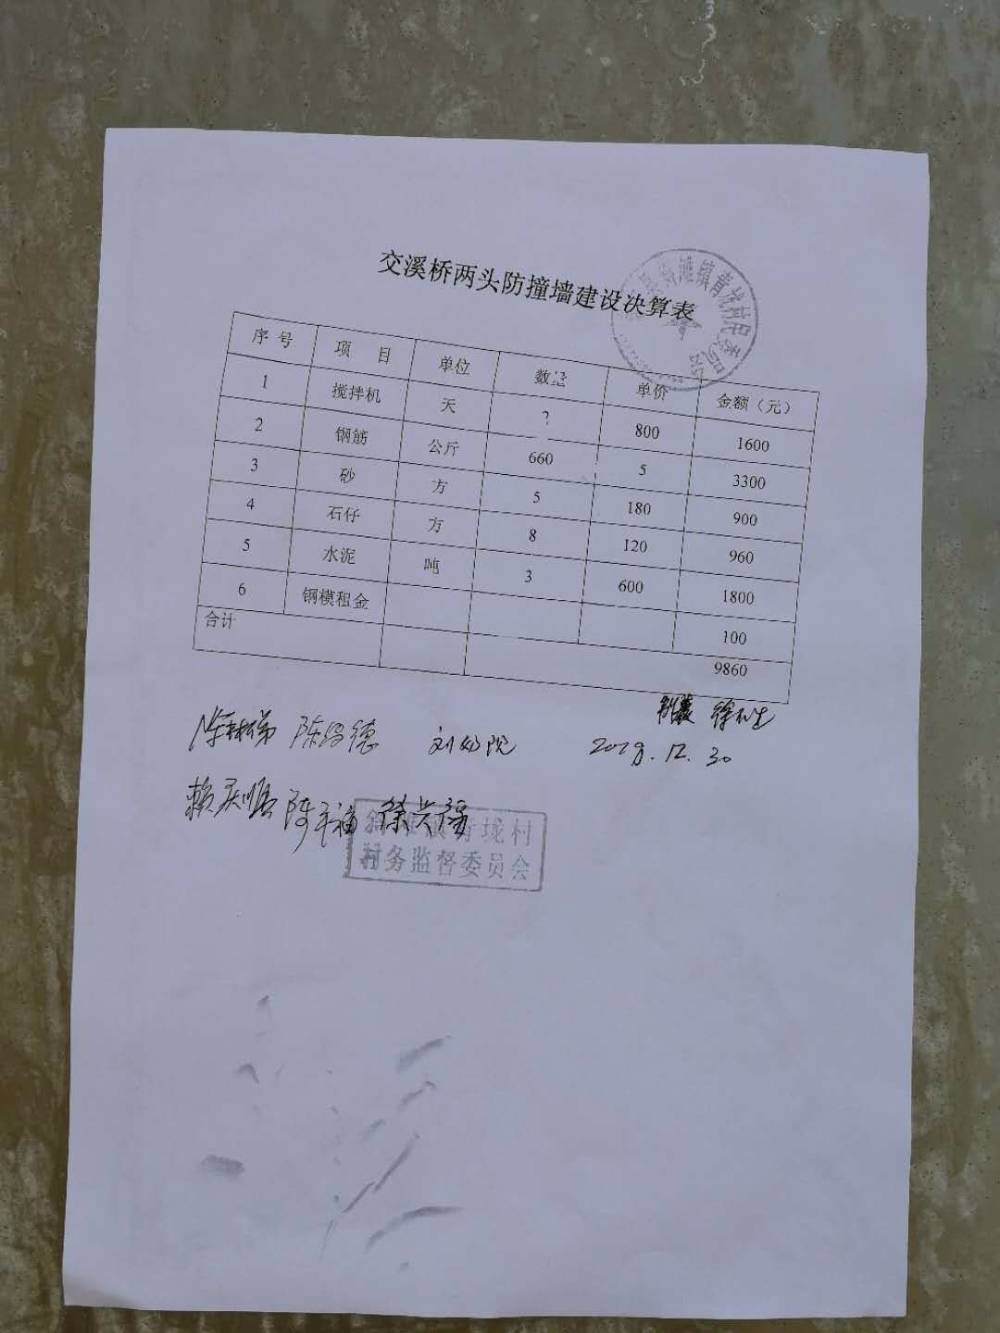 交溪桥两头防撞墙建设决算表
序号 项目 单位 数量 单价 金额（元）
1 搅拌机 天 800 1600
2 钢筋 公斤 660 5 3300
3 砂 方 5 180 900
4 石仔 方 8 120 960
5 水泥 吨 3 600 1800
6 钢模租金 100
合计 9860
2019.12.30
徐兴福
垅村
村务监督委员会